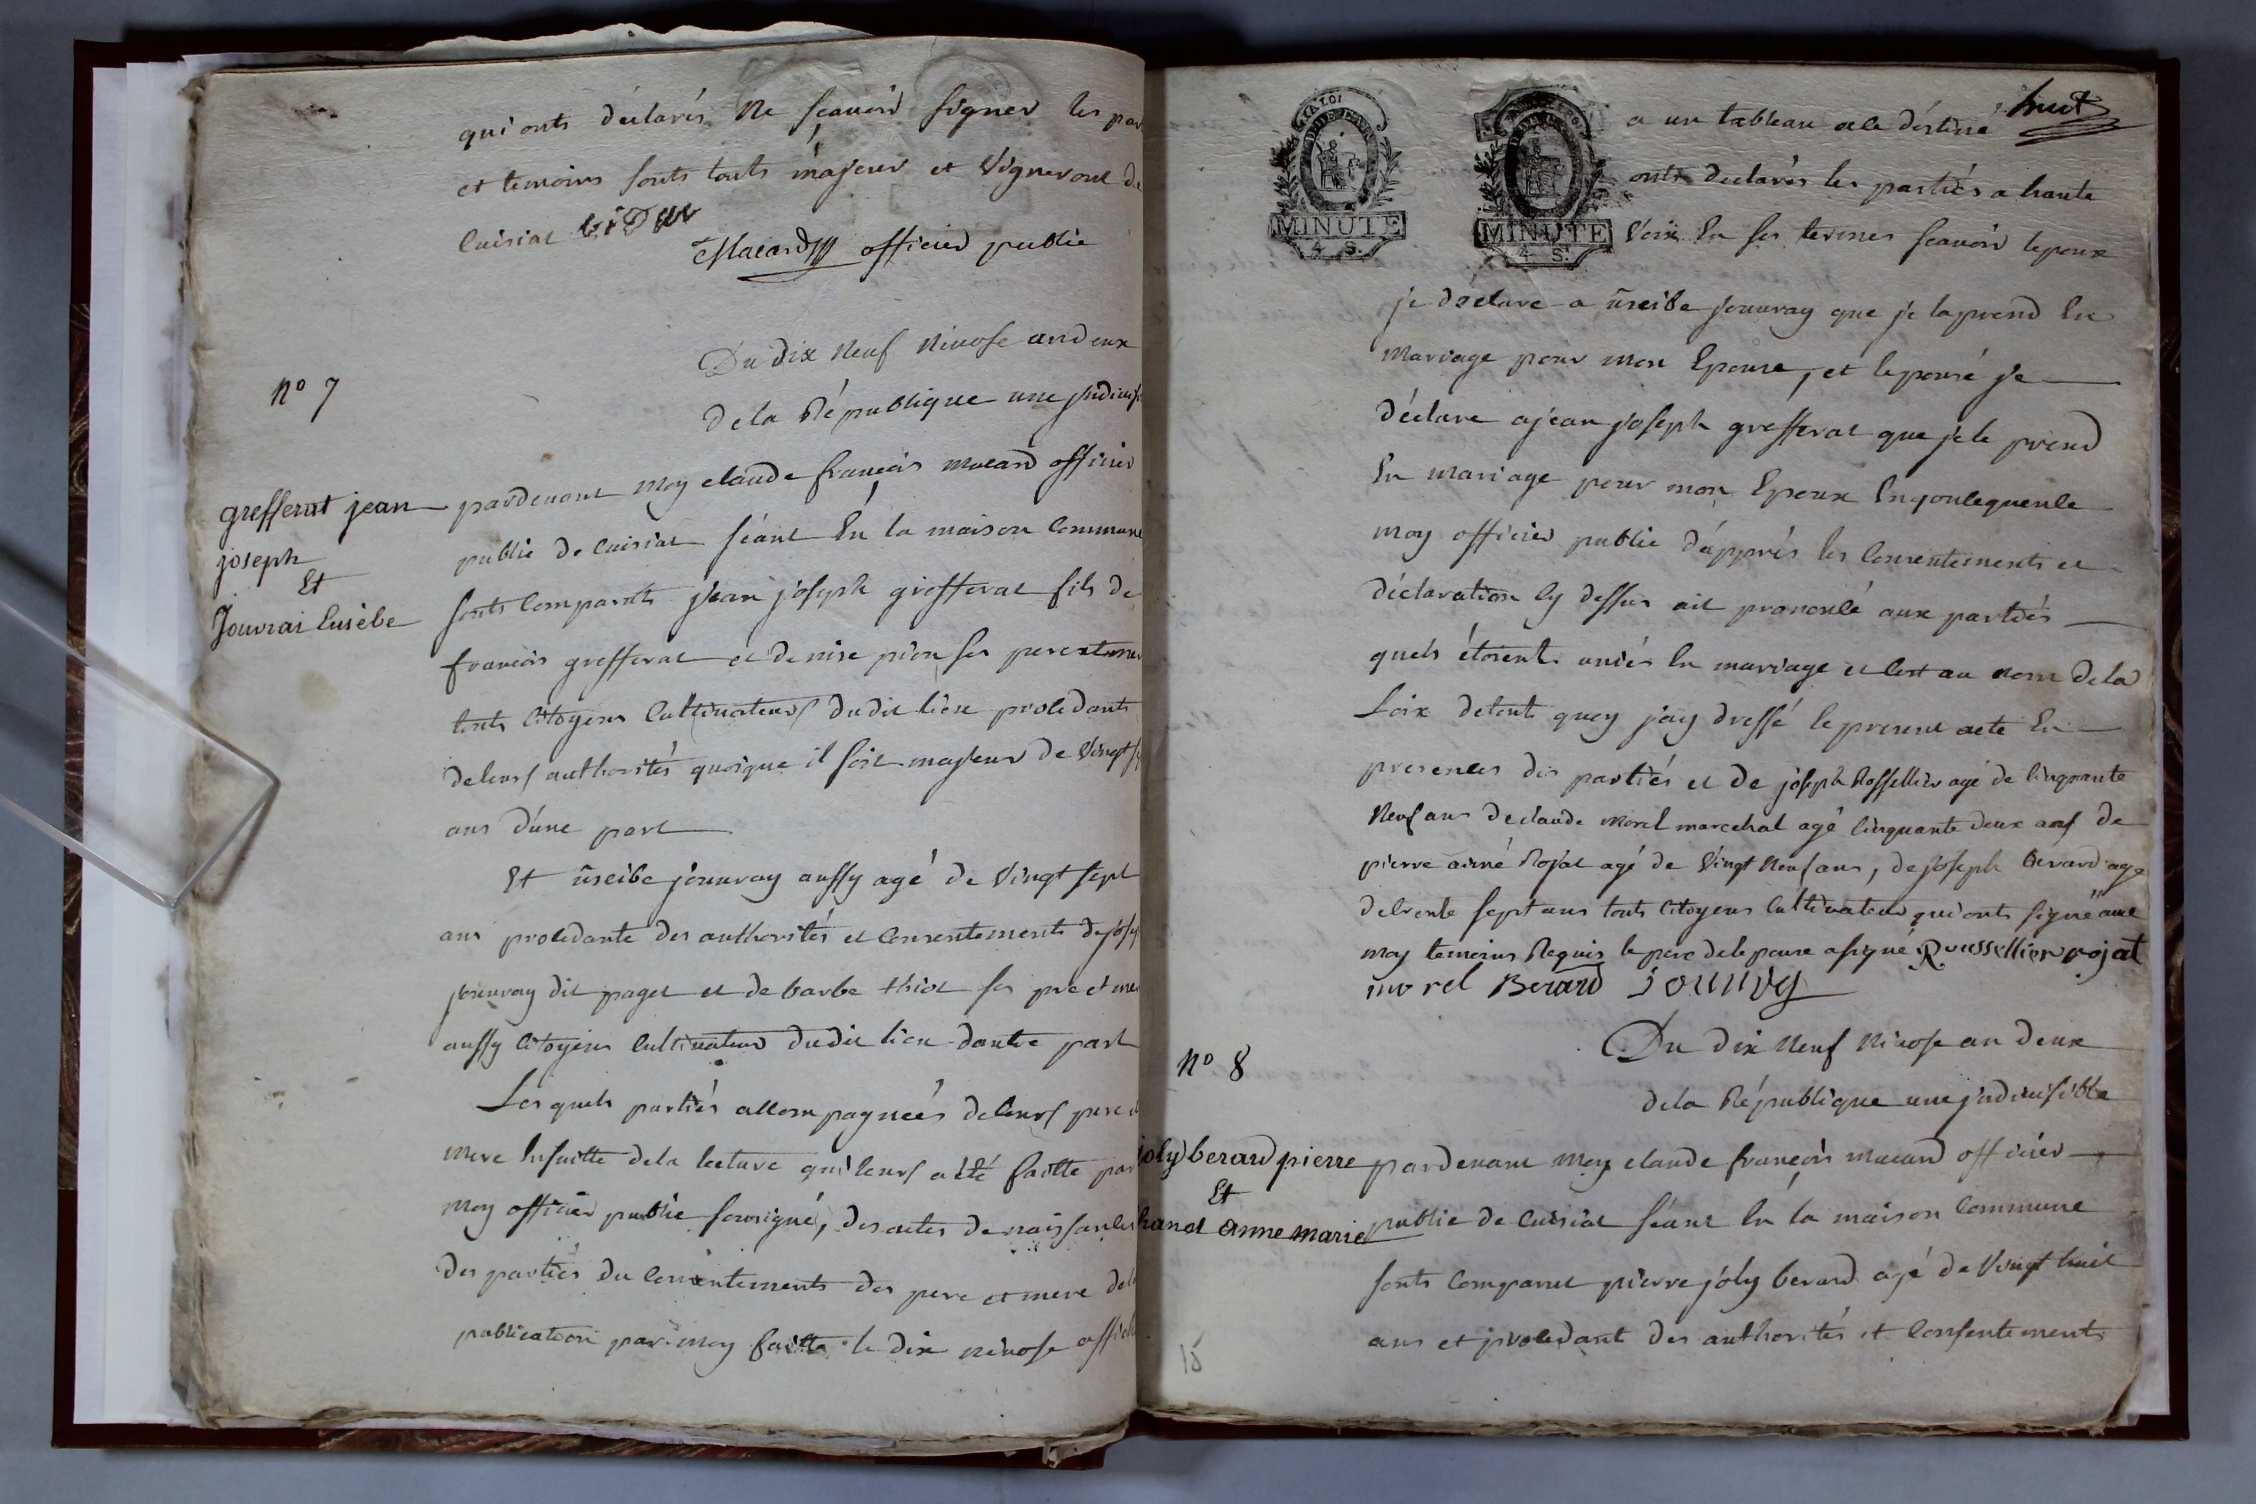 qui onts déclarés ne scauoir signer les par
et temoins sonts touts majeur et Vigneront de
Cuisiat
Macard officier public
nº 7
Du dix neuf nivose an deux
de la République une jndivis
grefferat jean
joseph
Et
Jouvrai Eusèbe
pardevant moy claude françois macard officier
public de Cuisiat séant En la maison Commune
sonts Comparuts jean joseph grefferat fils de
francois grefferat et denise pion ses pere et mere
touts Citoyens Cultivateurs dudit lieu procedants
de leurs authorités quoique il soit majeur de Vingt s
ans d'une part
Et üseibe jouvray aussy agé de Vingt sept
ans procedante des authorités et Consentements de jose
jouvray dit paget et de barbe thiot ses pre et me
aussy Citoyens Cultivateur dudit lieu d'autre part
Les quels partiés accompagneés de leurs pere e
mere Ensuitte de la lecture qui leurs a été faitte par
moy officier public sousigné, des actes de naissances
des partiés du Consentements des pere et mere de l
publication par moy faitte le dix nivose affich
huit
LA LOI
MINUTE
4 S.
MINUTE
4 S.
a un tableau a ce déstiné
onts declarés les partiés a haute
Voix En ses termes scauoir lepoux
je déclare a üseibe jouvray que je la prend En
mariage pour mon Epouse, et lepousé je
déclare a jean joseph grefferat que je le prend
En mariage pour mon Epoux Enconsequence
moy officier public d'apprés les Consentements et
déclaration Cy dessus ait prononcé aux partiés
quels étoient uniés En mariage et C'est au nom de la
Loix de tout quoy j'ay dressé le present acte En
presences des partiés et de joseph Rossellier agé de Cinquante
neuf ans de claude morel marechal agé Cinquante deux ans de
pierre aimé Rojat agé de Vingt neuf ans, de joseph Berard age
de trente sept ans touts Citoyens Cultivateur qui onts signé auec
moy temoins Requis le pere de lepouse a signé Roussellier rojat
morel Berard jouuvy
nº 8
Du dix neuf nivose an deux
de la République une jndivisible
joly berard pierre
Et
anne marie
pardevant moy claude françois macard officier
public de Cuisiat séant En la maison Commune
sonts Comparut pierre joly berard agé de Vingt huit
ans et procedant des authorités et Consentements
15